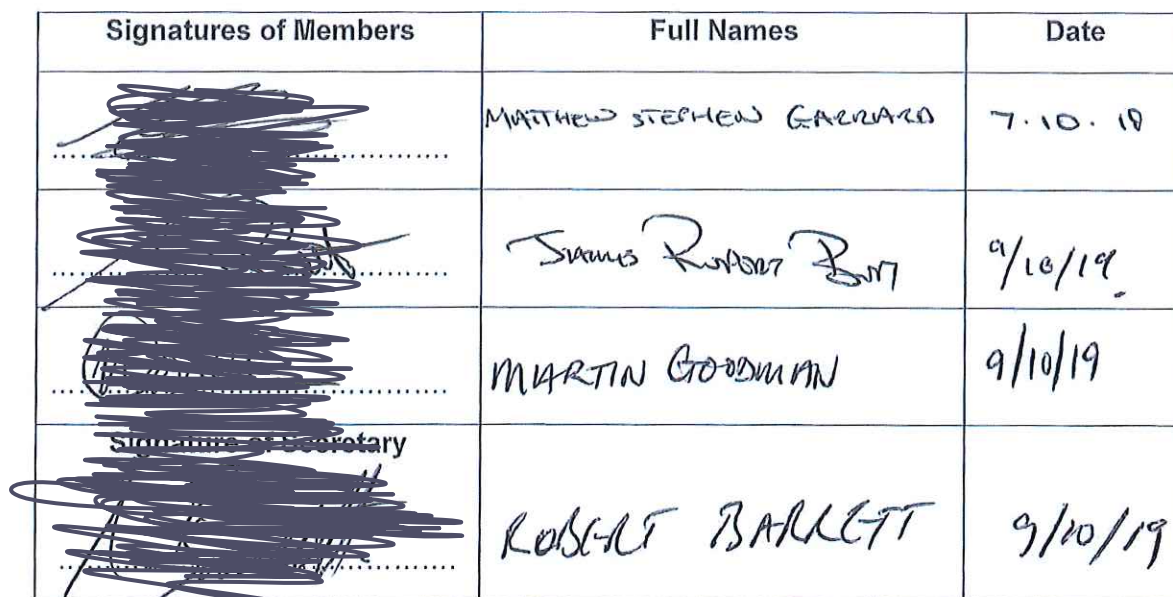 Signatures of Members Full Names Date
MATTHEW STEPHEN GARRARD 7.10.19
James Rupert Burt 9/10/19
MARTIN GOODMAN 9/10/19
Signature of Secretary
ROBERT BARRETT 9/10/19